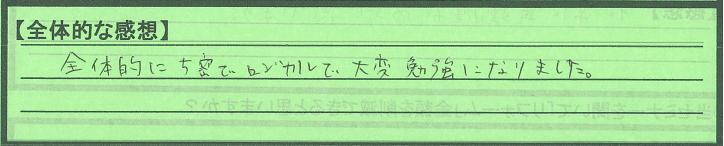 【全体的な感想】
全体的にち密でロジカルで大変勉強になりました。